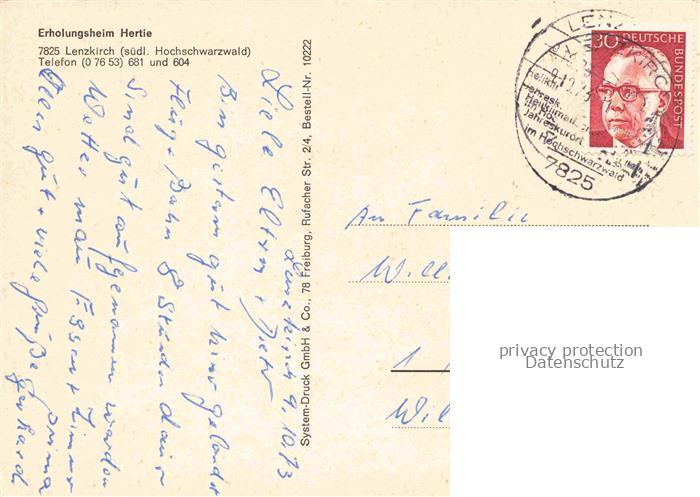 Erholungsheim Hertie
7825 Lenzkirch (südl. Hochschwarzwald)
Telefon (0 76 53) 681 und 604
Lenzkirch 9. 10. 73
Liebe Eltern + Dieter
Bin gestern gut hier gelandet
Flug + Bahn 8 Stunden dauer
Sind gut aufgenommen worden
Wetter Essen + Zimmer prima
Allen gut + viele Grüße Gerhard
System-Druck GmbH & Co., 78 Freiburg, Rufacher Str. 2/4, Bestell-Nr. 10222
30 DEUTSCHE
BUNDESPOST
LENZKIRCH
heilklim
Jahreskurort
im Hochschwarzwald
7825
An Familie
Will
1
Wil
privacy protection
Datenschutz